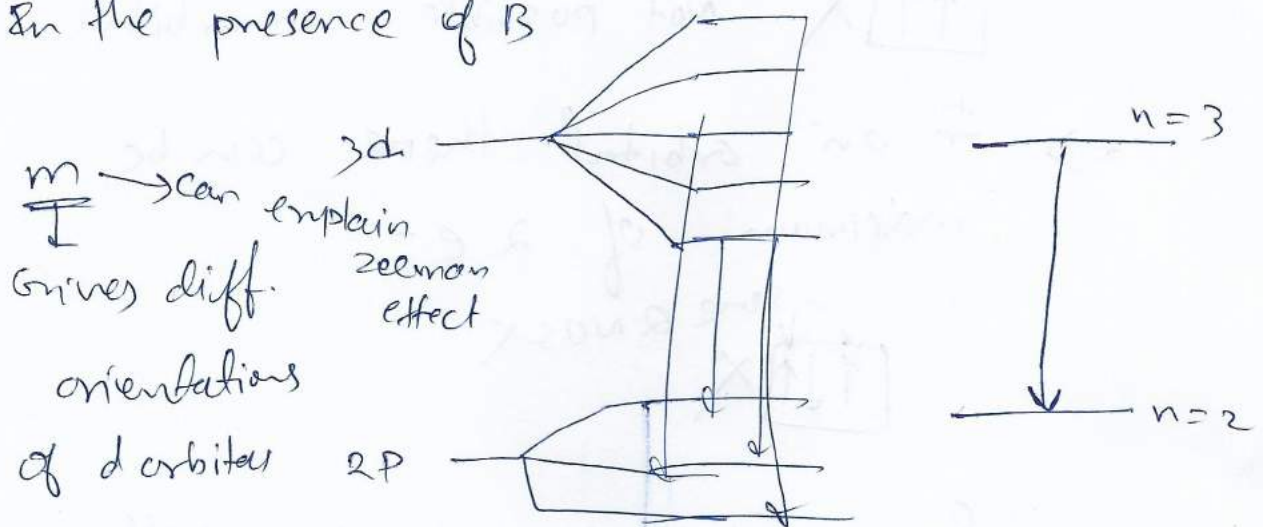 In the presence of B
n = 3
3d
m → can explain
zeeman
effect
Gives diff.
orientations
of d orbitals 2P
n = 2